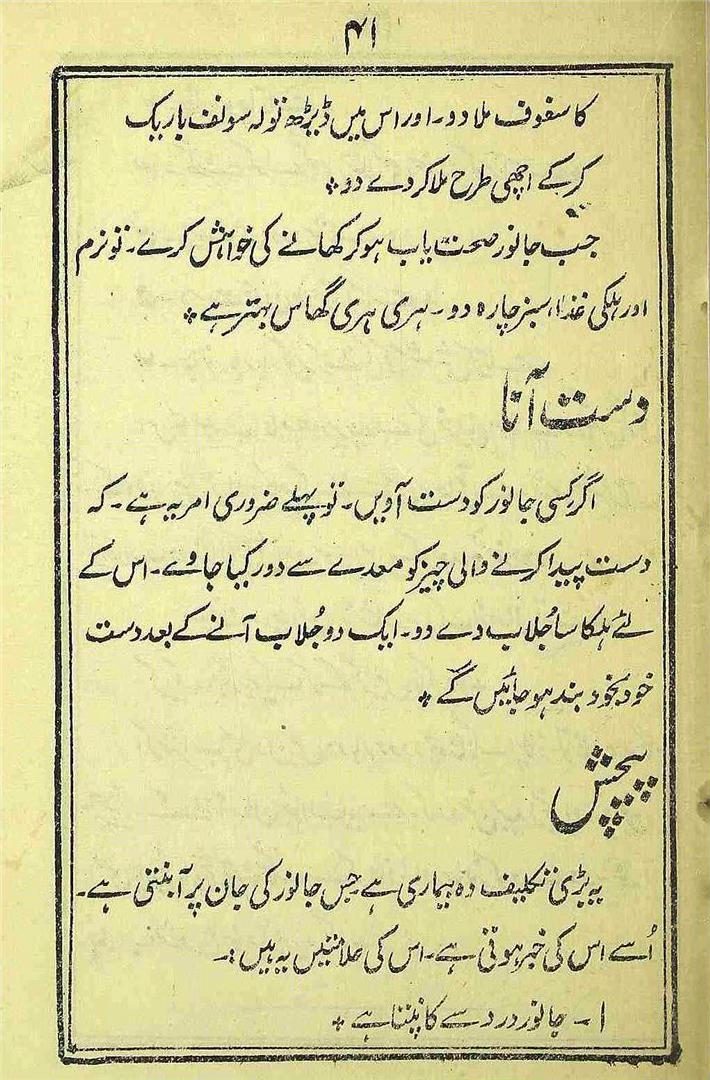 ۴۱
کا سفوف ملا دو۔ اور اس میں ڈیڑھ تولہ سونف باریک
کر کے اچھی طرح ملا کر دے دو *
جب جانور صحت یاب ہو کر کھانے کی خواہش کرے۔ تو نرم
اور ہلکی غذا، سبز چارہ دو۔ ہری ہری گھاس بہتر ہے *
دست آنا
اگر کسی جانور کو دست آویں۔ تو پہلے ضروری امر یہ ہے۔ کہ
دست پیدا کرنے والی چیز کو معدے سے دور کیا جاوے۔ اس کے
لئے ہلکا سا جُلاب دے دو۔ ایک دو جُلاب آنے کے بعد دست
خود بخود بند ہو جائیں گے *
پیچش
یہ بڑی تکلیف دہ بیماری ہے جس جانور کی جان پر آ بنتی ہے۔
اُسے اس کی خبر ہوتی ہے۔ اس کی علامتیں یہ ہیں :۔
۱۔ جانور درد سے کانپتا ہے *